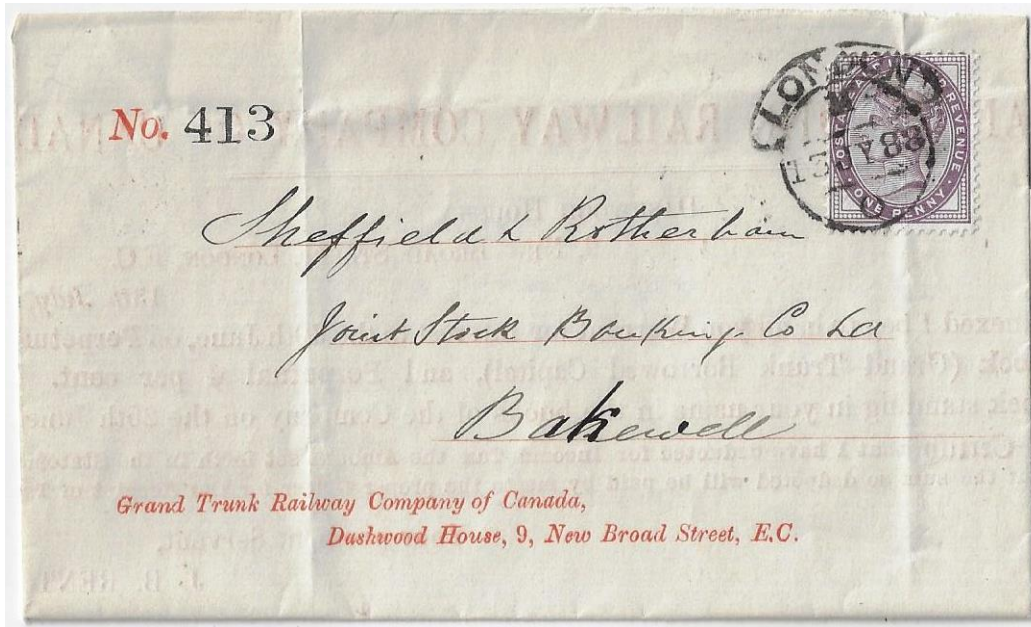 No. 413
LONDON
88
POSTAGE AND INLAND REVENUE
ONE PENNY
Sheffield & Rotherham
Joint Stock Banking Co Ld
Bakewell
Grand Trunk Railway Company of Canada,
Dashwood House, 9, New Broad Street, E.C.